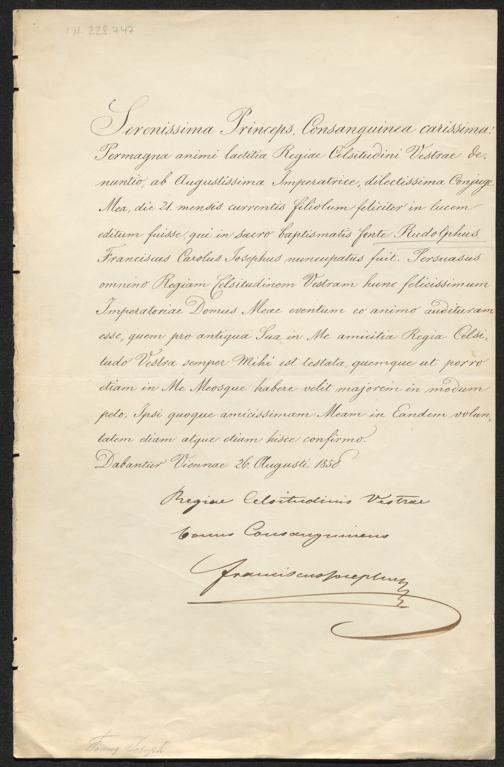 I.N. 228.747
Serenissima Princeps, Consanguinea carissima!
Permagna animi laetitia Regiae Celsitudini Vestrae de-
nuntio, ab Augustissima Imperatrice, dilectissima Conjuge
Mea, die 21. mensis currentis filiolum feliciter in lucem
editum fuisse, qui in sacro baptismatis fonte Rudolphus
Franciscus Carolus Josephus nuncupatus fuit. Persuasus
omnino Regiam Celsitudinem Vestram hunc felicissimum
Imperatoriae Domus Meae eventum eo animo audituram
esse, quem pro antiqua Sua in Me amicitia Regia Celsi-
tudo Vestra semper Mihi est testata, quemque ut porro
etiam in Me Meosque habere velit majorem in modum
peto. Ipsi quoque amicissimam Meam in Eandem volun-
tatem etiam atque etiam hisce confirmo.
Dabantur Viennae 26. Augusti 1858
Regiae Celsitudinis Vestrae
bonus Consanguineus
Franciscus Josephus
Franz Joseph